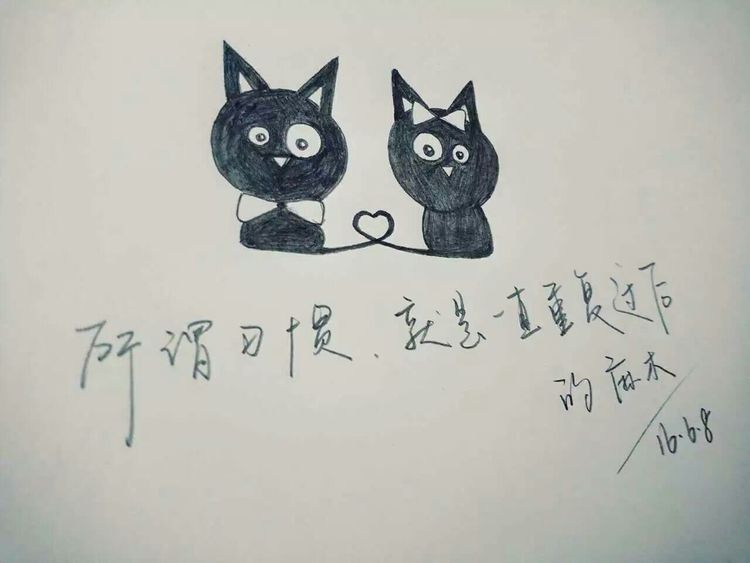 所谓习惯、就是一直重复过后
的麻木
16.6.8